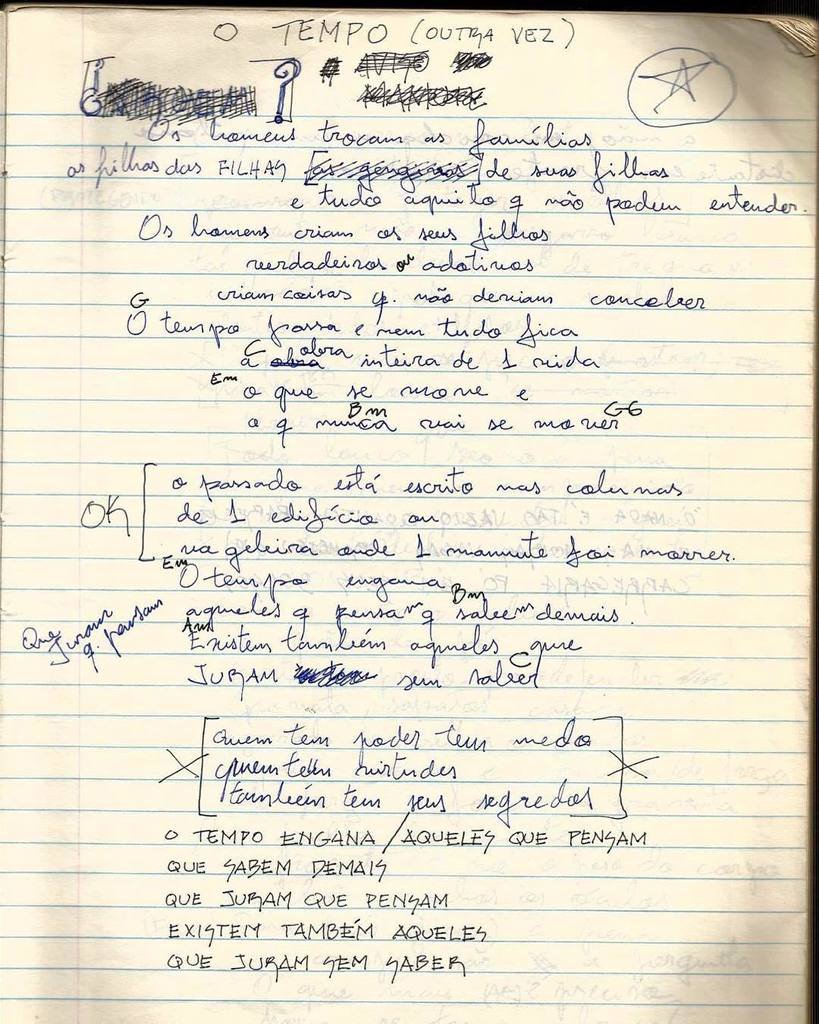 O TEMPO (OUTRA VEZ)
Os homens trocam as famílias
as filhas das FILHAS de suas filhas
e tudo aquilo q não podem entender.
Os homens criam os seus filhos
verdadeiros ou adotivos
criam coisas q. não deviam conceber
G
O tempo passa e nem tudo fica
C
a obra inteira de 1 vida
Em
o que se move e
Bm G6
o q nunca vai se mover
OK
o passado está escrito nas colunas
de 1 edifício ou
na geleira onde 1 mamute foi morrer.
Em
O tempo engana
Bm
aqueles q pensam q sabem demais.
Que juram q. pensam
Am
Existem também aqueles que
C
JURAM sem saber
quem tem poder tem medo
quem tem virtudes
também tem seus segredos
O TEMPO ENGANA / AQUELES QUE PENSAM
QUE SABEM DEMAIS
QUE JURAM QUE PENSAM
EXISTEM TAMBÉM AQUELES
QUE JURAM SEM SABER